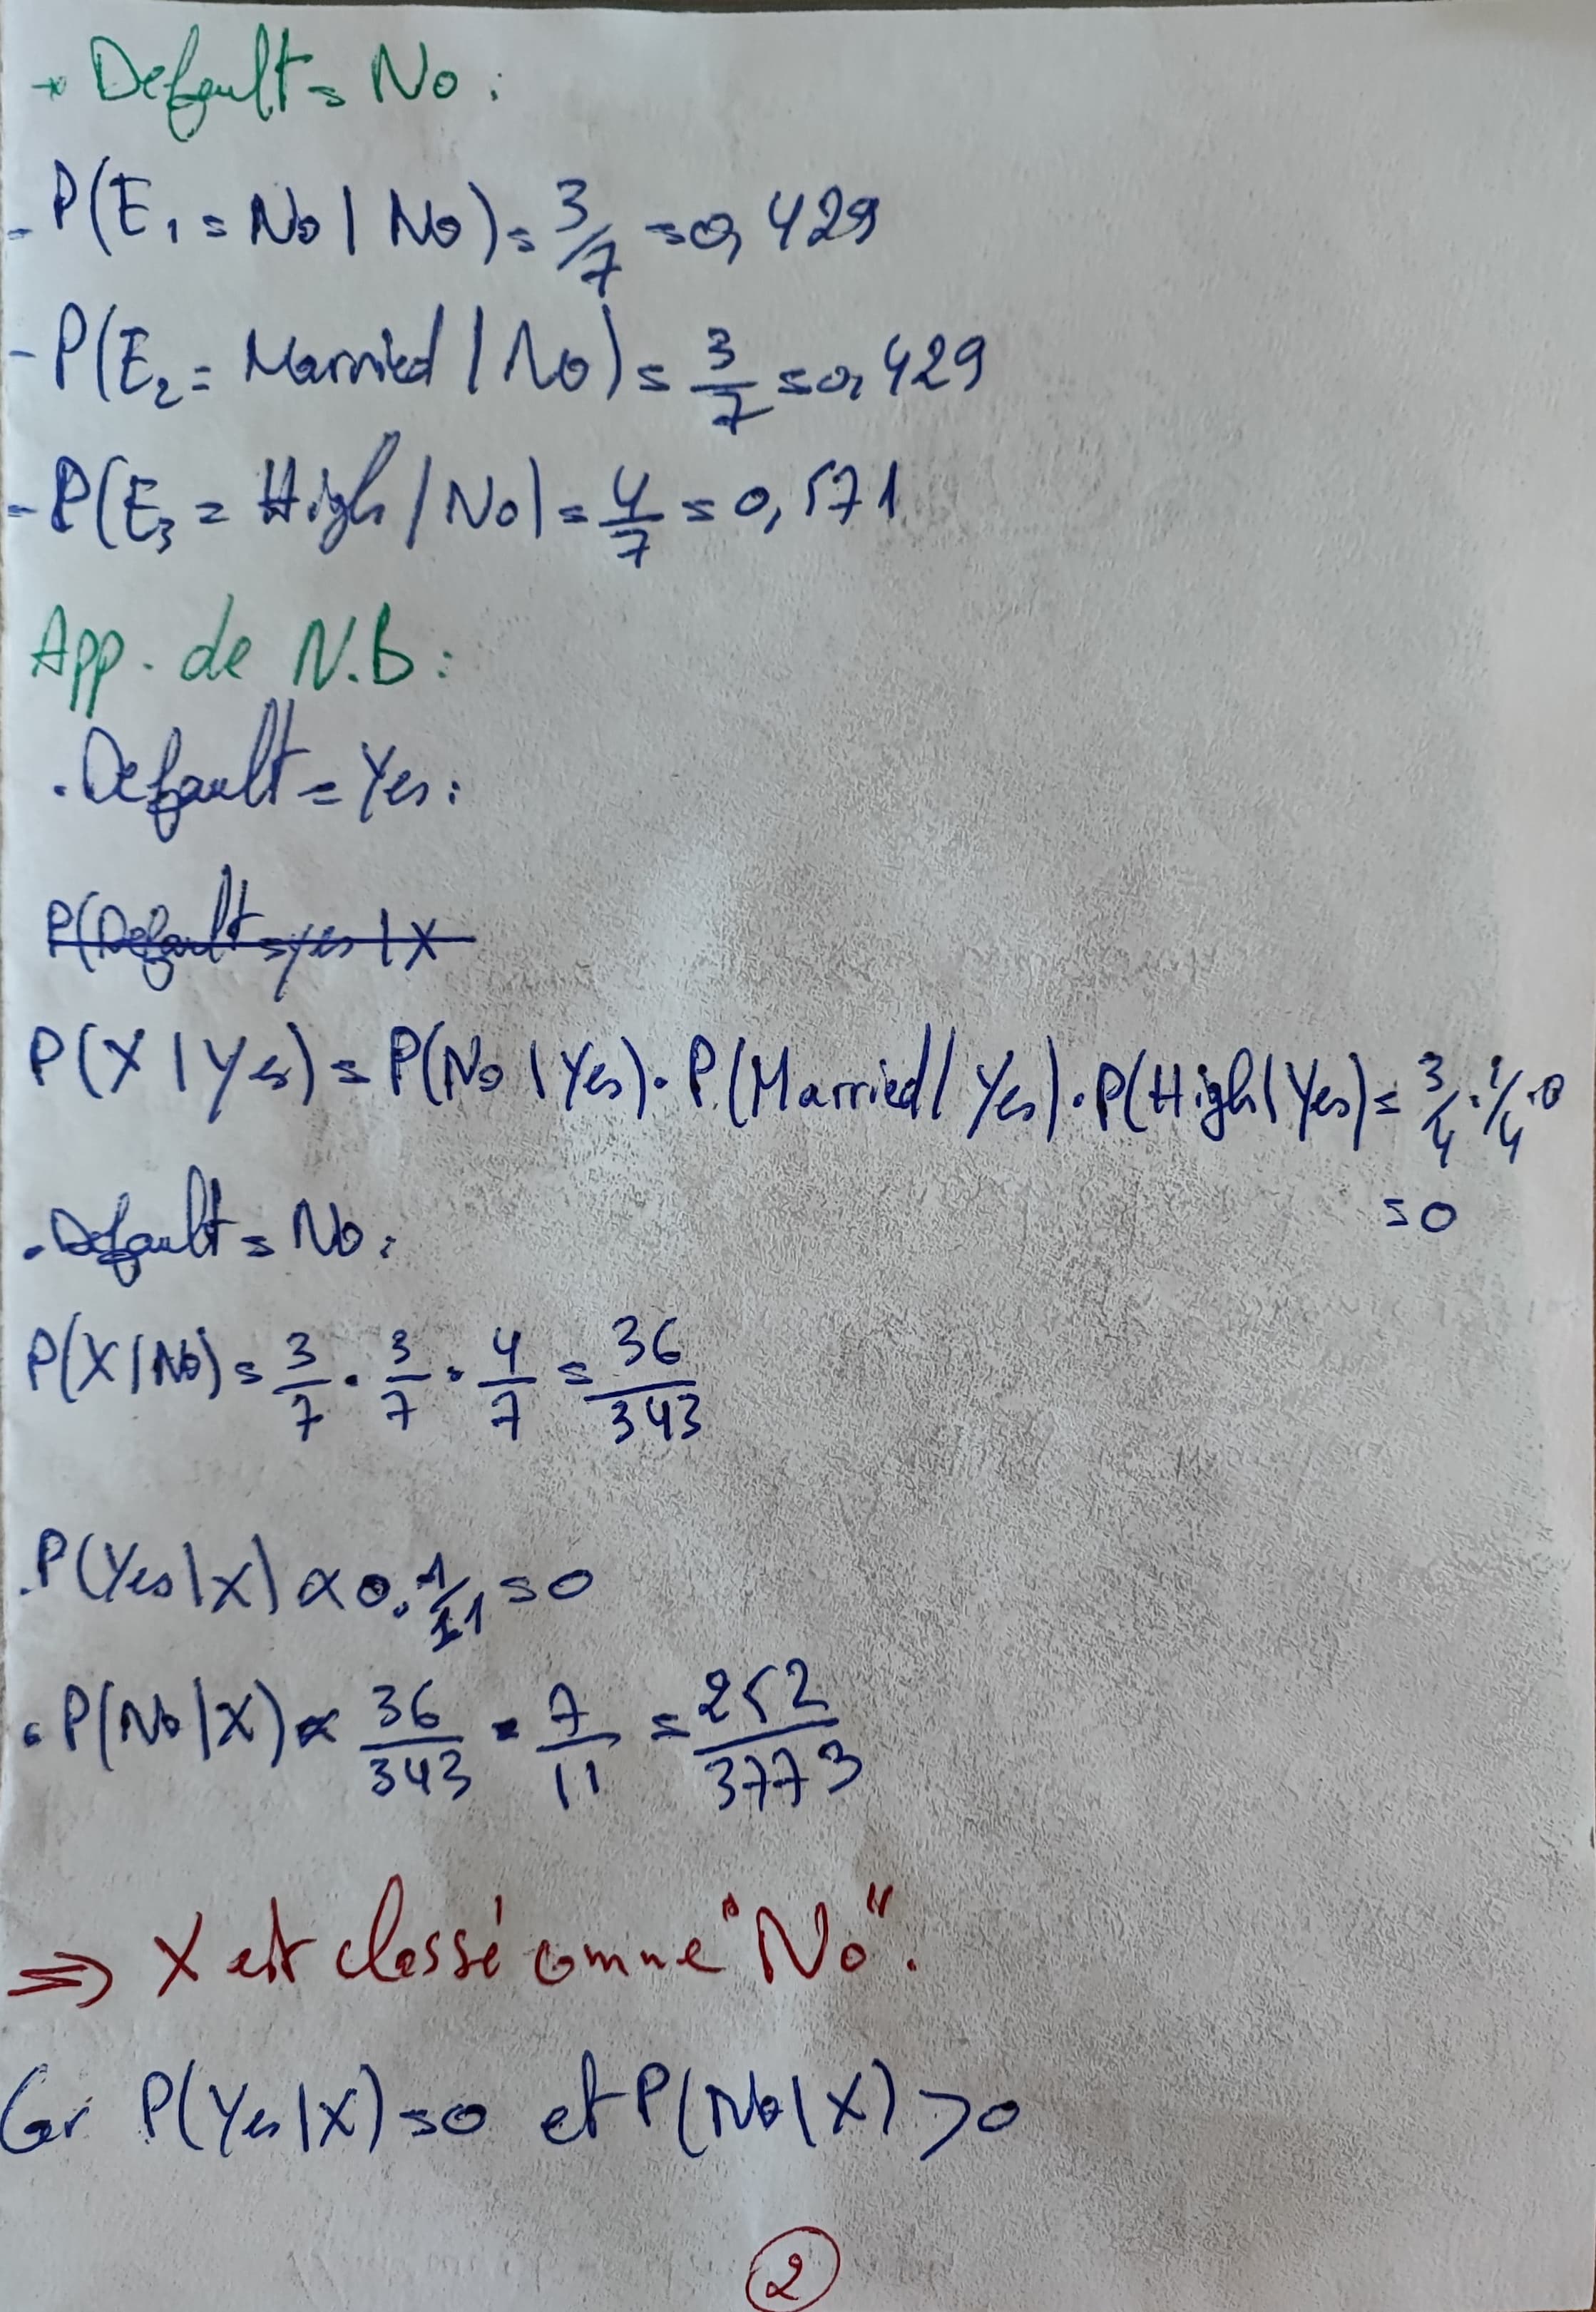 → Default = No :
- P(E₁ = No | No) = 3/7 = 0,429
- P(E₂ = Married | No) = 3/7 = 0,429
- P(E₃ = High | No) = 4/7 = 0,571
App. de N.B :
. Default = Yes :
P(Default = yes | X
P(X | Yes) = P(No | Yes) . P(Married | Yes) . P(High | Yes) = 3/4 . 1/4 . 0
= 0
. Default = No :
P(X | No) = 3/7 . 3/7 . 4/7 = 36/343
. P(Yes | X) ∝ 0 . 1/11 = 0
. P(No | X) ∝ 36/343 . 7/11 = 252/3773
⇒ X est classé comme "No".
Car P(Yes | X) = 0 et P(No | X) > 0
2